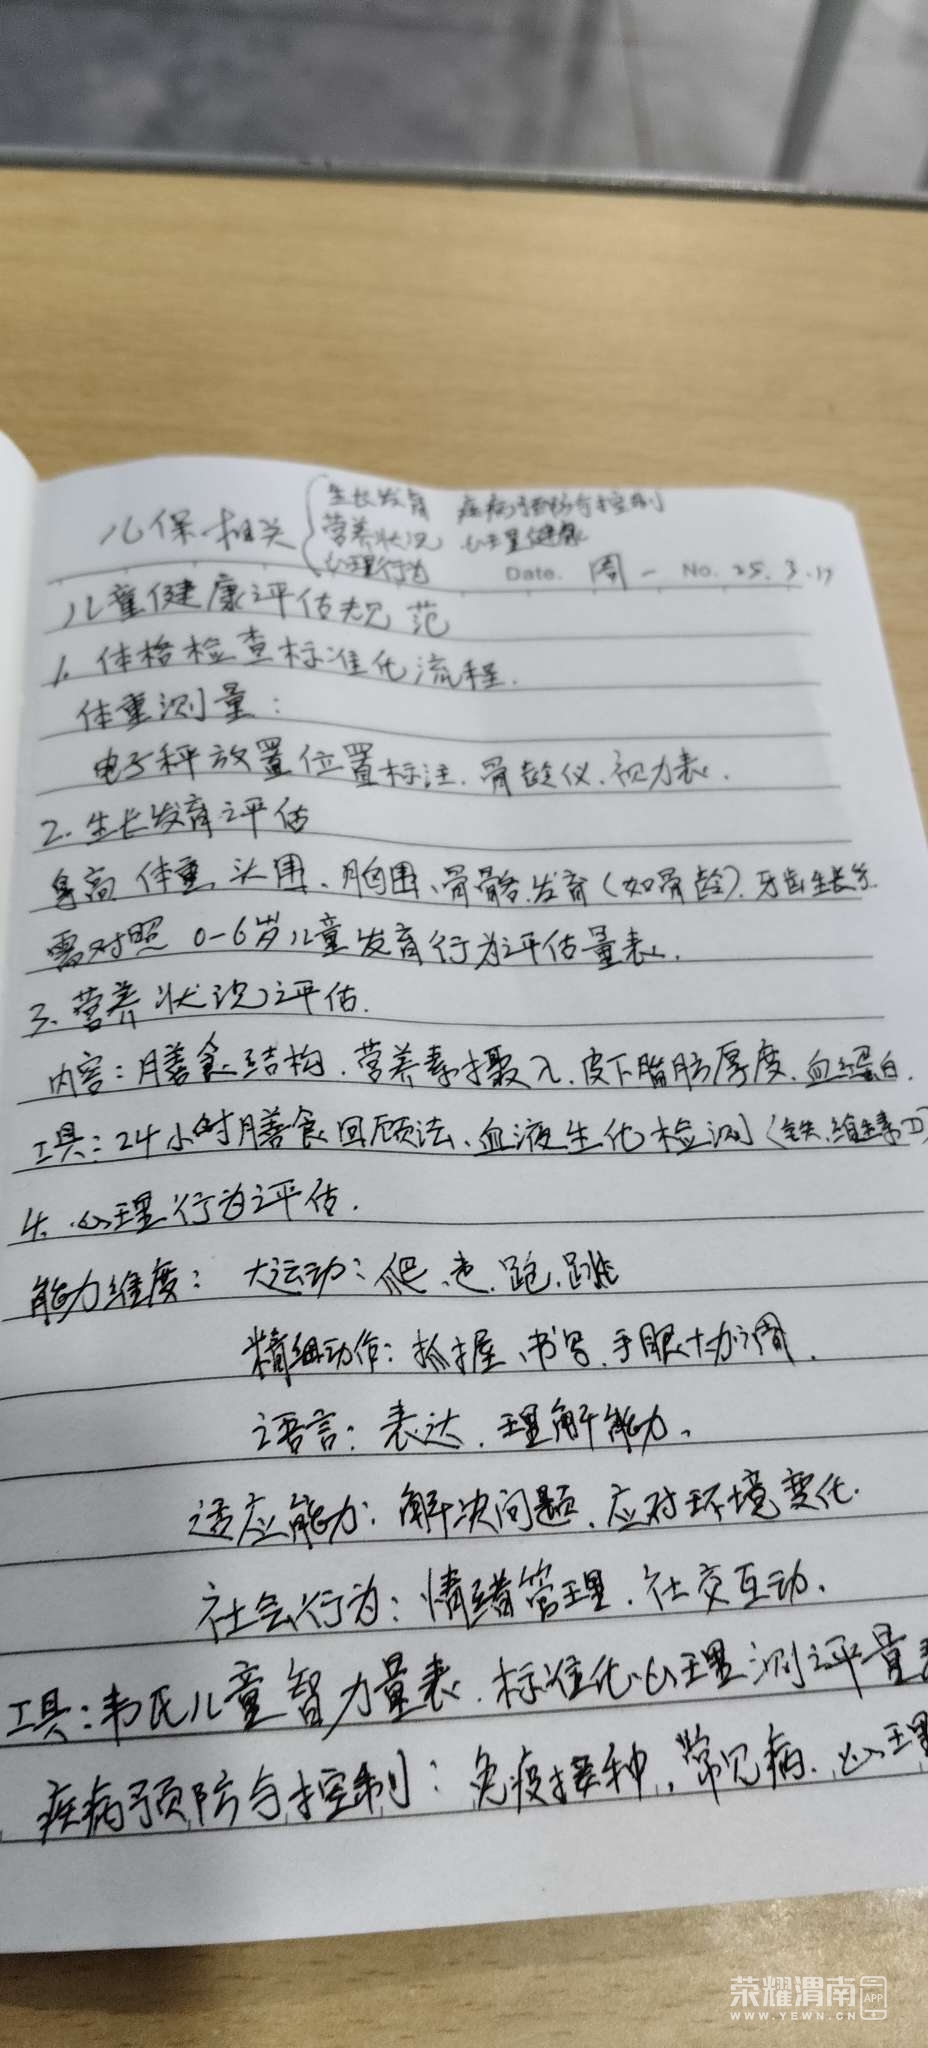 儿保相关
生长发育 疾病预防与控制
营养状况 心理健康
心理行为
Date. 周一 No. 25.3.17
儿童健康评估规范
1. 体格检查标准化流程.
体重测量:
电子秤放置位置标注、骨龄仪、视力表.
2. 生长发育评估
身高 体重 头围、胸围、骨骼发育(如骨龄)、牙齿生长等.
需对照 0-6岁儿童发育行为评估量表.
3. 营养状况评估.
内容: 膳食结构、营养素摄入、皮下脂肪厚度、血红蛋白.
工具: 24小时膳食回顾法、血液生化检测(铁、维生素D)
4. 心理行为评估.
能力维度: 大运动: 爬、走、跑、跳
精细动作: 抓握、书写、手眼协调.
语言: 表达、理解能力.
适应能力: 解决问题、应对环境变化.
社会行为: 情绪管理、社交互动.
工具: 韦氏儿童智力量表、标准化心理测评量表
疾病预防与控制: 免疫接种, 常见病、心理
荣耀渭南 APP
WWW.YEWN.CN